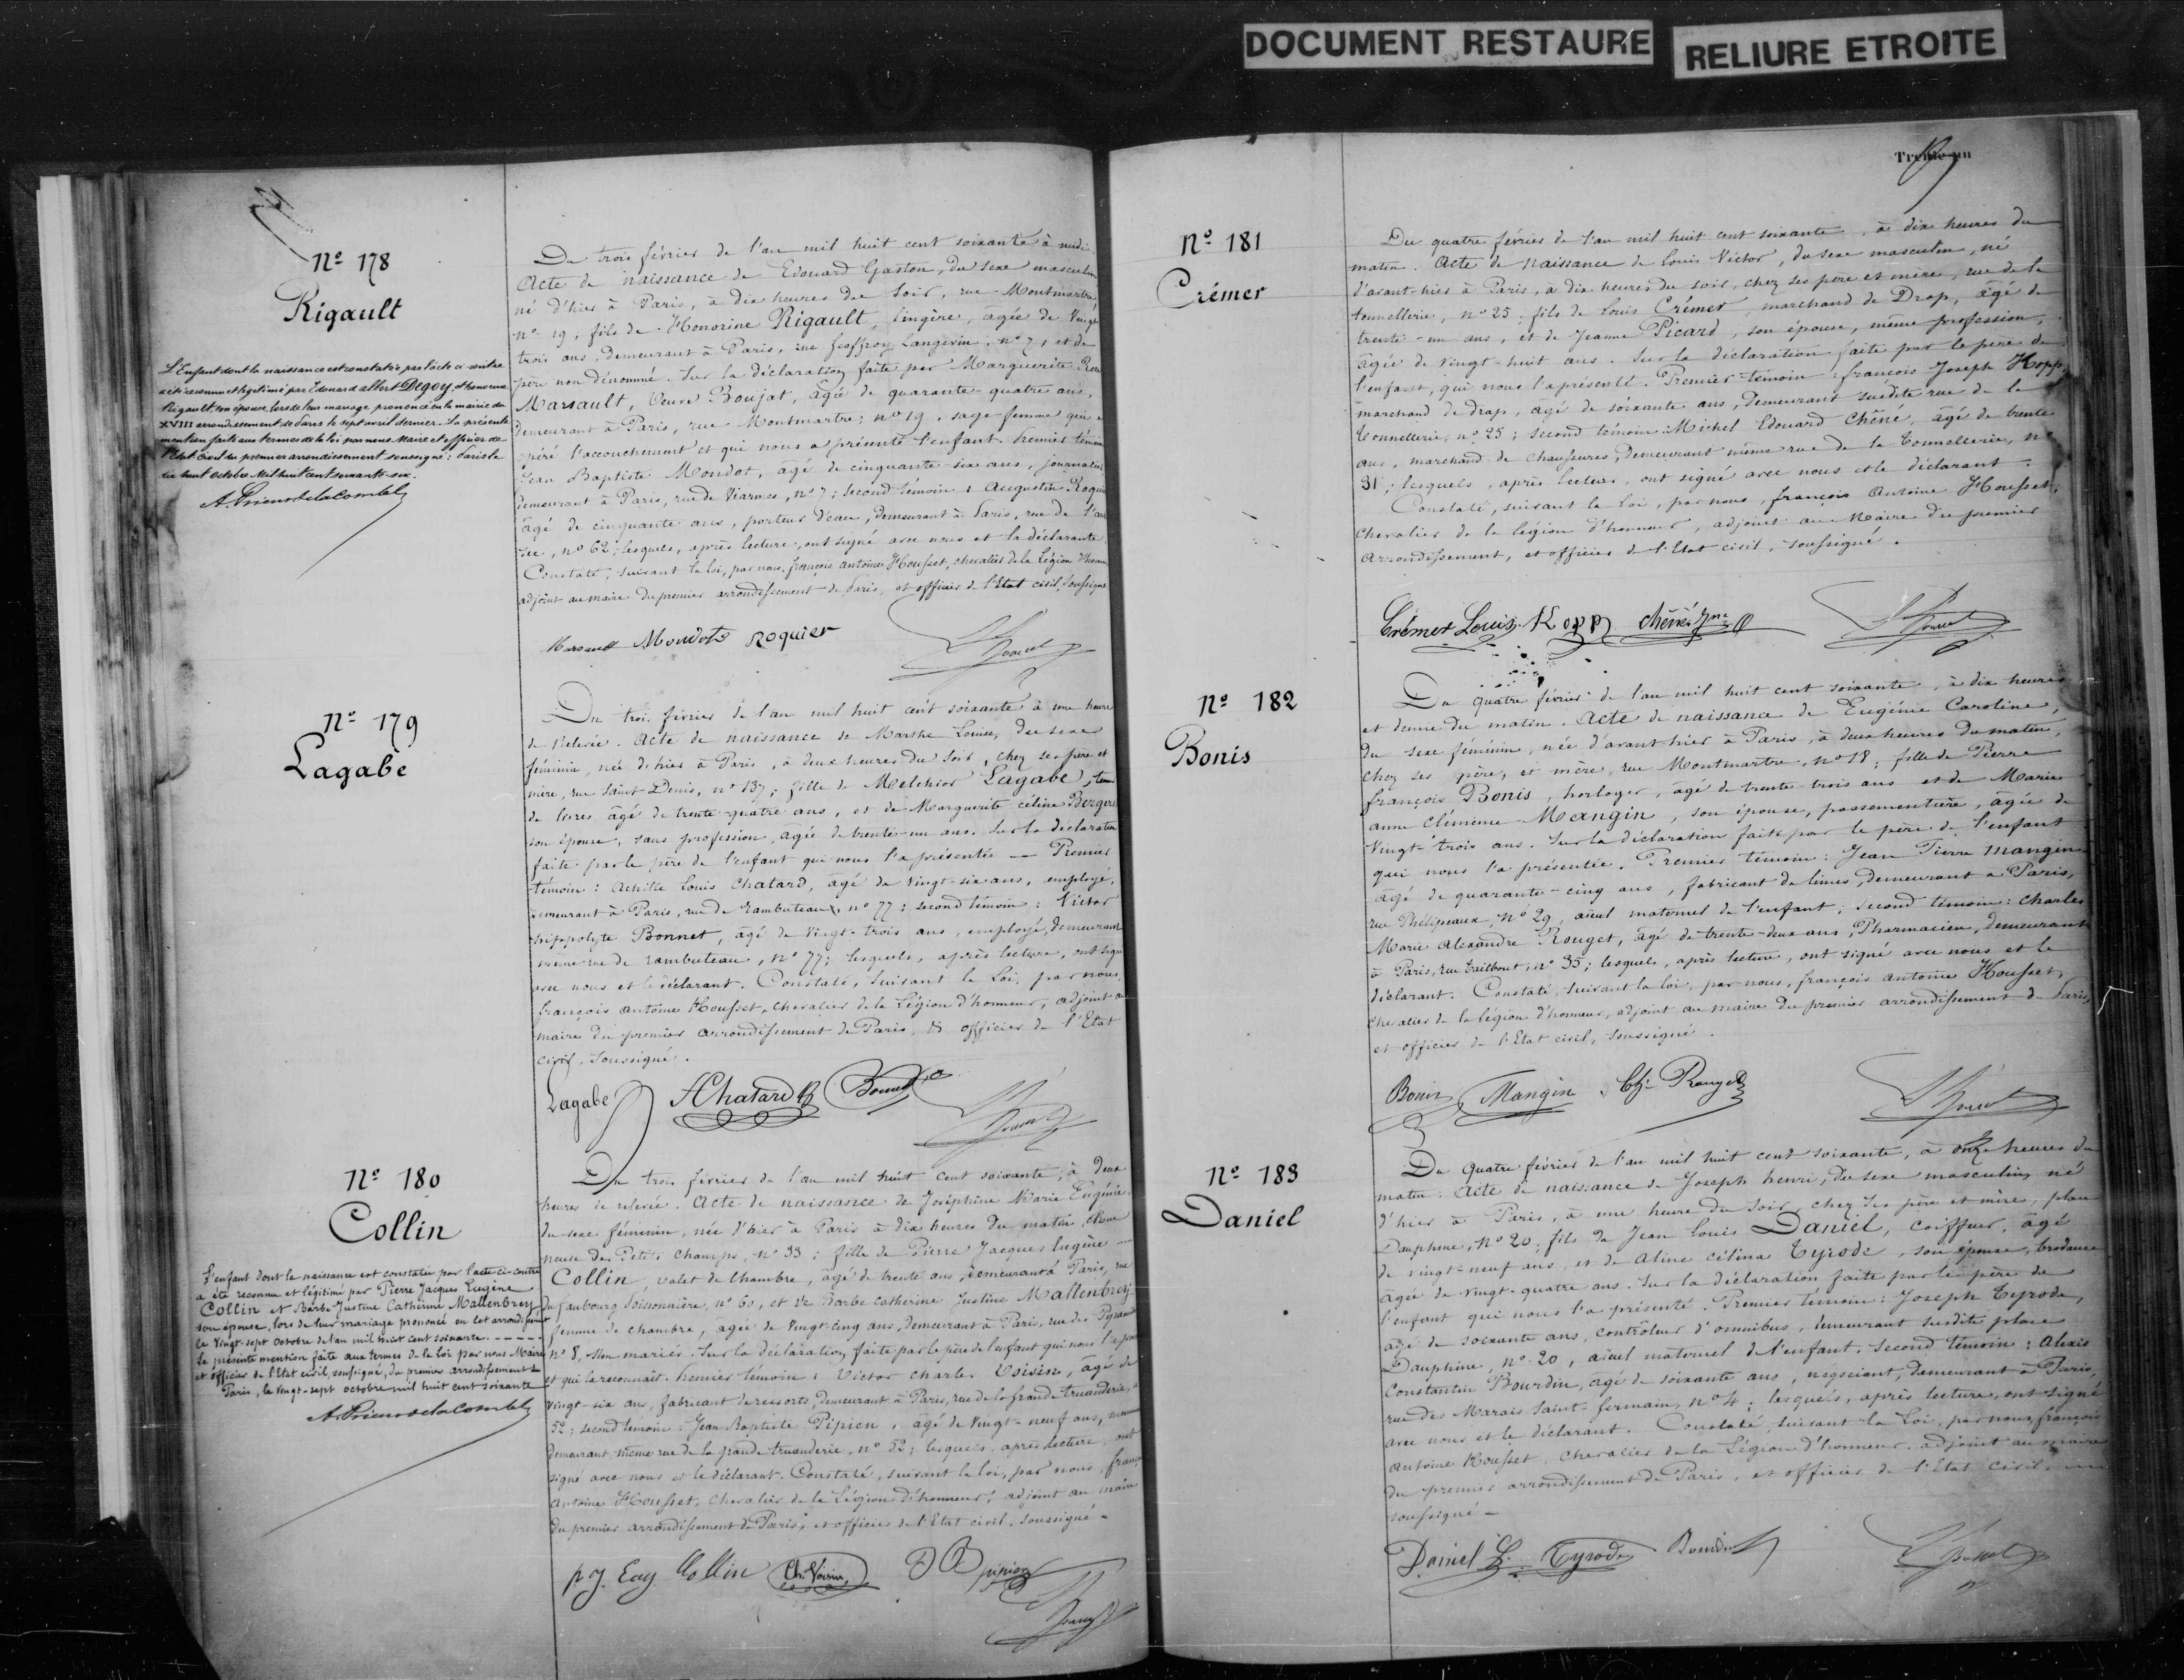 DOCUMENT RESTAURE
RELIURE ETROITE
Nº 178
Rigault
L'Enfant dont la naissance est constatée par l'acte ci-contre
a été reconnu et légitimé par Edouard Albert Degoy et honorine
Rigault, son épouse, lors de leur mariage prononcé en la mairie du
XVIII arrondissement de Paris le sept avril dernier. La présente
mention faite aux termes de la loi par nous Maire et officier de
l'Etat civil du premier arrondissement soussigné : Paris le
huit octobre mil huit cent soixante six.
Du trois février de l'an mil huit cent soixante à midi.
Acte de naissance de Edouard Gaston, du sexe masculin
né d'hier à Paris, à dix heures du soir, rue Montmartre,
nº 19, fils de Honorine Rigault, lingère, agée de Vingt
trois ans, demeurant à Paris, rue Geoffroy Langevin, nº 7, et de
père non dénommé. Sur la déclaration faite par Marguerite
Marsault, Veuve Boujat, âgée de quarante quatre ans,
demeurant à Paris, rue Montmartre, nº 19, sage-femme qui a
opéré l'accouchement et qui nous a présenté l'enfant. Premier témoin
Jean Baptiste Moudot, âgé de cinquante six ans, journalier
demeurant à Paris, rue de Viarmes, nº 7; second témoin : Augustin Roquier
âgé de cinquante ans, porteur d'eau, demeurant à Paris, rue de l'arbre
sec, nº 62; lesquels, après lecture, ont signé avec nous et la déclarante
Constaté, suivant la loi, par nous, françois antoine Housset, chevalier de la Légion d'honneur
adjoint au maire du premier arrondissement de Paris, et officier de l'Etat civil, soussigné
Marsault Moudot Roquier
Nº 179
Lagabe
Du trois février de l'an mil huit cent soixante à une heure
de relevée. Acte de naissance de Marthe Louise, du sexe
féminin, née d'hier à Paris, à deux heures du soir, chez ses père et
mère, rue Saint Denis, nº 137; fille de Melchior Lagabe, teneur
de livres âgé de trente-quatre ans, et de Marguerite céline Bergere
son épouse, sans profession, agée de trente-un ans. Sur la déclaration
faite par le père de l'enfant qui nous l'a présentée — Premier
témoin : Achille Louis Chatard, âgé de vingt-six ans, employé,
demeurant à Paris, rue de rambuteau, nº 77 : second témoin : Victor
hippolyte Bonnet, âgé de vingt-trois ans, employé, demeurant
même rue de rambuteau, nº 77; lesquels, après lecture, ont signé
avec nous et le déclarant. Constaté, suivant la Loi, par nous
françois antoine Housset, chevalier de la Légion d'honneur, adjoint au
maire du premier arrondissement de Paris, & officier de l'Etat
civil, soussigné.
Lagabe AChatard Bonnet
Nº 180
Collin
L'enfant dont la naissance est constatée par l'acte ci-contre
a été reconnu et légitimé par Pierre Jacques Eugène
Collin et Barbe Justine Catherine Mallenbrey
son épouse, lors de leur mariage prononcé en cet arrondissement
le Vingt-sept octobre de l'an mil huit cent soixante. -----
La présente mention faite aux termes de la loi par nous Maire
et officier de l'Etat civil, soussigné, du premier arrondissement de
Paris, le vingt-sept octobre mil huit cent soixante
Du trois février de l'an mil huit cent soixante, à deux
heures de relevée. Acte de naissance de Joséphine Marie Eugénie
du sexe féminin, née d'hier à Paris à dix heures du matin, Rue
neuve des Petits champs, nº 33; fille de Pierre Jacques Eugène
Collin, valet de chambre, âgé de trente ans, demeurant à Paris, rue
du faubourg Poissonnière, nº 60, et de Barbe Catherine Justine Mallenbrey
femme de chambre, agée de Vingt-cinq ans, demeurant à Paris, rue des Pyramides
nº 8, non mariés. Sur la déclaration faite par le père de l'enfant qui nous l'a
et qui la reconnait. Premier témoin : Victor Charles Voisin, âgé de
vingt-six ans, fabricant de ressorts, demeurant à Paris, rue de la grande truanderie,
52; second témoin. Jean Baptiste Pipien, âgé de vingt-neuf ans,
demeurant même rue de la grande truanderie, nº 52; lesquels, après lecture, ont
signé avec nous et le déclarant. Constaté, suivant la loi, par nous, françois
Antoine Housset, chevalier de la Légion d'honneur, adjoint au maire
du premier arrondissement de Paris, et officier de l'Etat civil, soussigné —
p J. Eug Collin Ch. Voisin JB pipien
Trente-un
Nº 181
Crémer
Du quatre février de l'an mil huit cent soixante, à dix heures du
matin. Acte de naissance de Louis Victor, du sexe masculin, né
d'avant-hier à Paris, à dix heures du soir, chez ses père et mère, rue de la
tonnellerie, nº 25; fils de Louis Crémer, marchand de Drap, âgé de
trente-un ans, et de Jeanne Picard, son épouse, même profession,
âgée de vingt-huit ans. Sur la déclaration faite par le père de
l'enfant, qui nous l'a présenté. Premier témoin : françois Joseph Kopp
marchand de drap, âgé de soixante ans, demeurant susdite rue de la
tonnellerie, nº 25; second témoin : Michel Edouard Chéné, âgé de trente
ans, marchand de chaussures, demeurant même rue de la tonnellerie, nº
31; lesquels, après lecture, ont signé avec nous et le déclarant.
Constaté, suivant la loi, par nous, françois Antoine Housset,
chevalier de la légion d'honneur, adjoint au Maire du premier
arrondissement, et officier de l'Etat civil, soussigné.
Crémer Louis Kopp Chéné
Nº 182
Bonis
Du quatre février de l'an mil huit cent soixante, à dix heures
et demie du matin. Acte de naissance de Eugénie Caroline,
du sexe féminin, née d'avant hier à Paris, à deux heures du matin,
chez ses père, et mère, rue Montmartre, nº 18; fille de Pierre
françois Bonis, horloger, âgé de trente trois ans et de Marie
anne Clémence Mangin, son épouse, passementière, âgée de
vingt-trois ans. Sur la déclaration faite par le père de l'enfant
qui nous l'a présentée. Premier témoin : Jean Pierre Mangin
âgé de quarante-cinq ans, fabricant de limes, demeurant à Paris,
rue Phélipeaux, nº 29, aïeul maternel de l'enfant; second témoin : Charles
Marie Alexandre Rouget, âgé de trente-deux ans, Pharmacien, demeurant
à Paris, rue taitbout, nº 35; lesquels, après lecture, ont signé avec nous et le
déclarant. Constaté, suivant la loi, par nous, françois antoine Housset,
chevalier de la légion d'honneur, adjoint au maire du premier arrondissement de Paris
et officier de l'Etat civil, soussigné.
Bonis Mangin Ch. Rouget
Nº 183
Daniel
Du quatre février de l'an mil huit cent soixante, à onze heures du
matin. Acte de naissance de Joseph henri, du sexe masculin, né
d'hier à Paris, à une heure du soir, chez ses père et mère, place
Dauphine, nº 20; fils de Jean Louis Daniel, coiffeur, âgé
de vingt-neuf ans, et de Aline célina Tyrode, son épouse, brodeuse
âgée de vingt-quatre ans. Sur la déclaration faite par le père de
l'enfant qui nous l'a présenté. Premier témoin : Joseph Tyrode,
âgé de soixante ans, contrôleur d'omnibus, demeurant susdite place
Dauphine, nº 20, aïeul maternel de l'enfant. Second témoin : Alexis
Constantin Bourdin, âgé de soixante ans, négociant, demeurant à Paris,
rue des Marais Saint germain, nº 4; lesquels, après lecture, ont signé
avec nous et le déclarant. Constaté, suivant la Loi, par nous, françois
antoine Housset, chevalier de la Légion d'honneur, adjoint au maire
du premier arrondissement de Paris, et officier de l'Etat civil,
soussigné —
Daniel L. Tyrode Bourdin